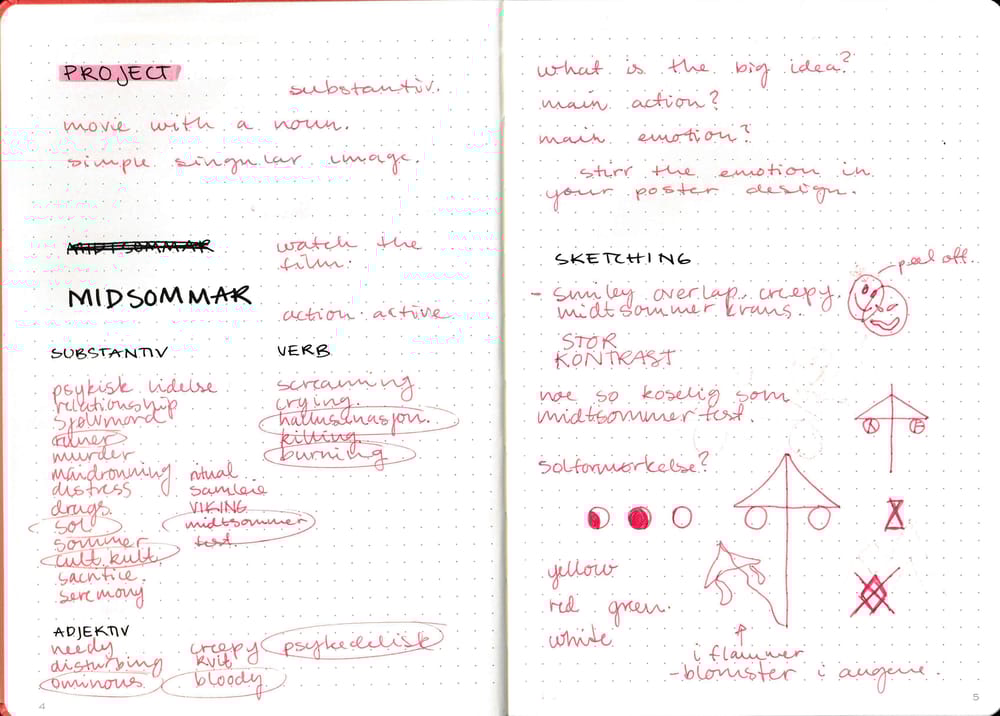 PROJECT
substantiv.
movie with a noun.
simple singular image.
MIDTSOMMAR
watch the
film.
MIDSOMMAR
action. active.
SUBSTANTIV
psykisk lidelse
relationship
sjølvmord
murder
maidronning
distress
drugs.
sol
sommer
cult. kult.
sacrifice.
seremony
ritual
samleie
VIKING
midtsommer
fest.
VERB
screaming.
crying.
hallusinasjon.
killing.
burning
ADJEKTIV
needy
disturbing
ominous
creepy
kvit
bloody
psykedelisk
4
what is the big idea?
main action?
main emotion?
stirr the emotion in
your poster design.
SKETCHING
peel off.
- smiley overlap. creepy.
midtsommer krans.
STOR
KONTRAST
noe so koselig som
midtsommerfest.
solformørkelse?
yellow
red green.
white.
i flammer
- blomster i augene.
5